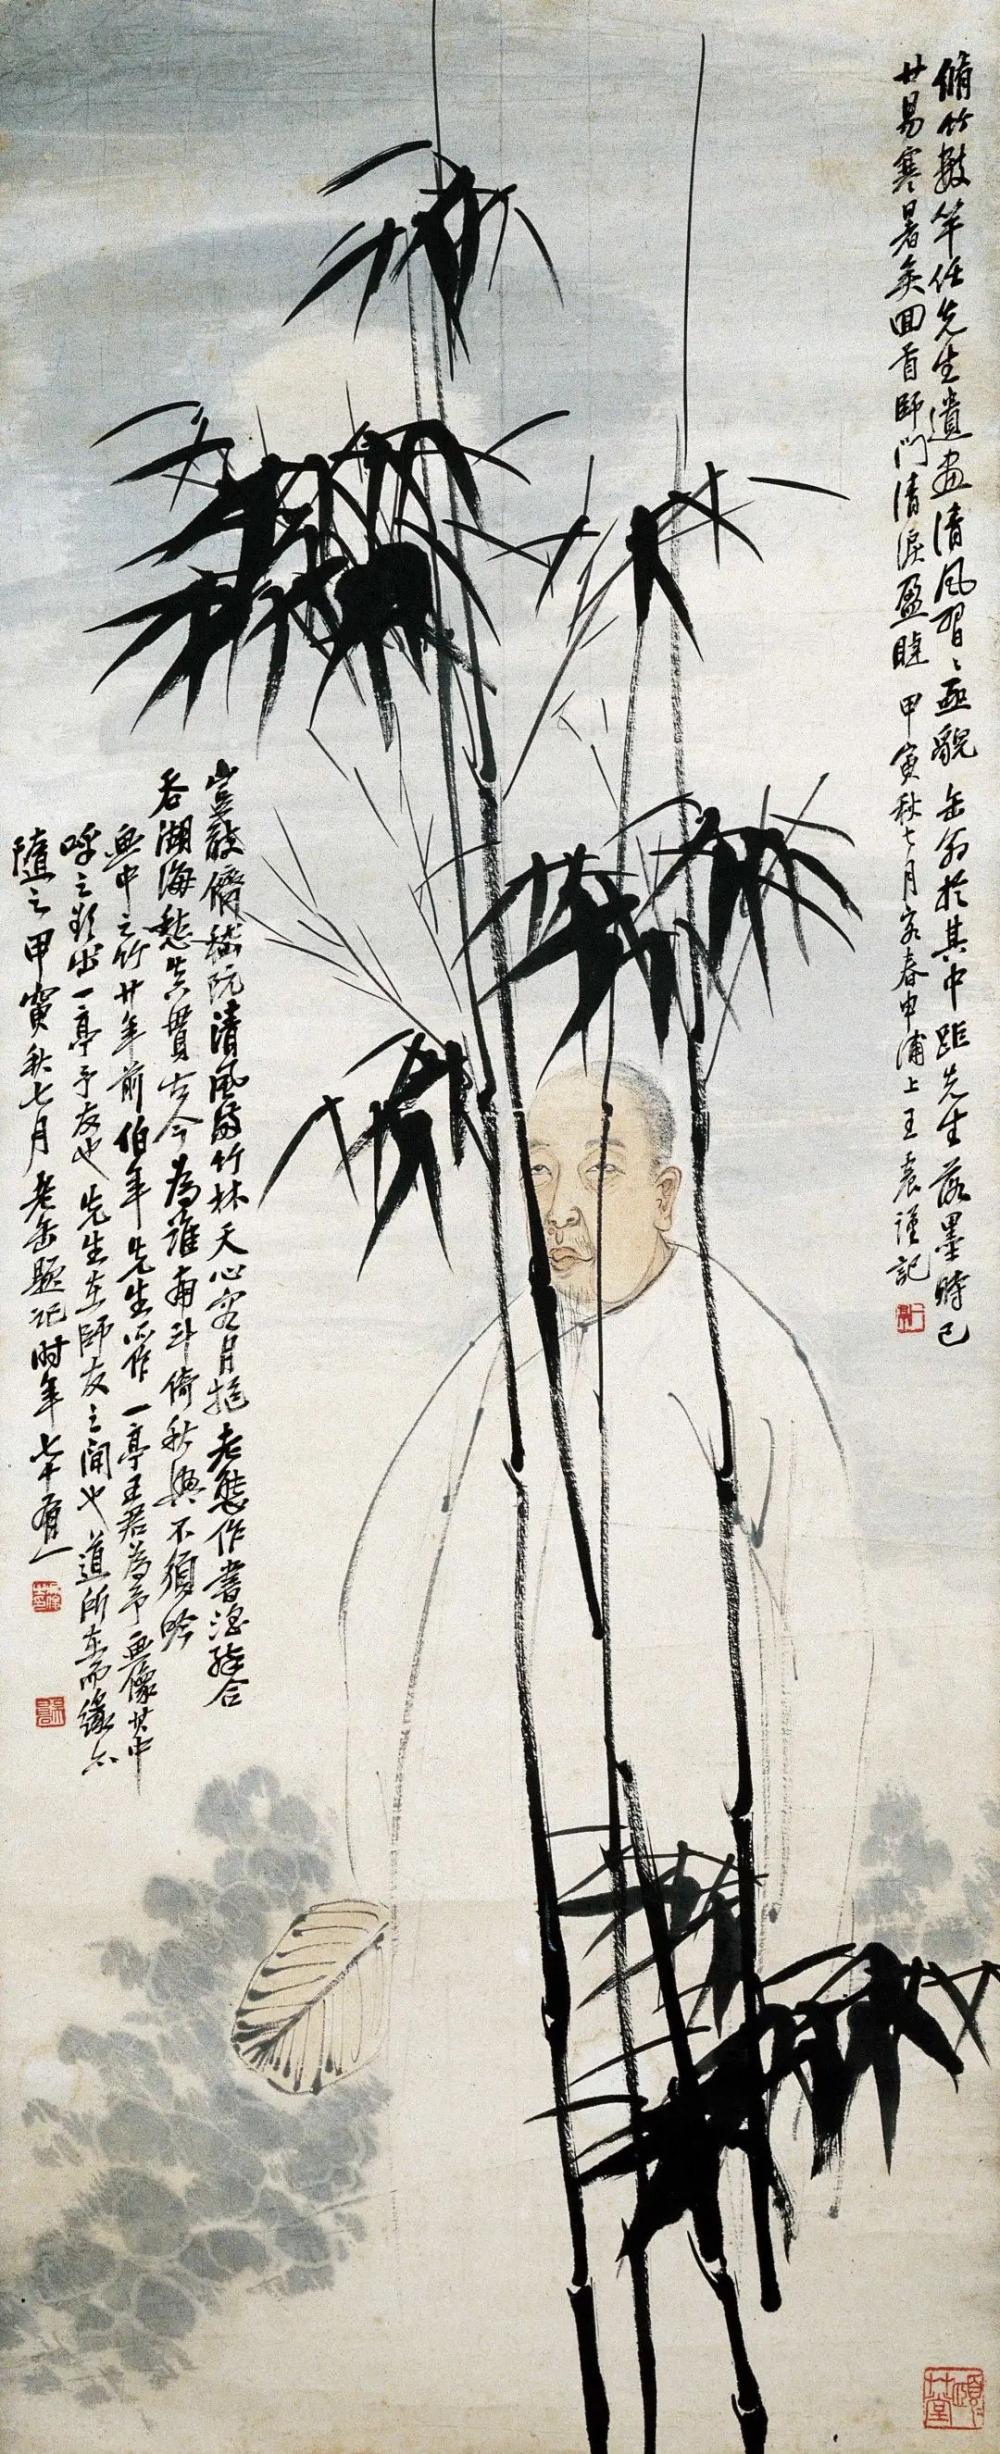 脩竹數竿任先生遺畫清風習〻亟貌缶翁於其中距先生落墨時已
廿易寒暑矣回首師門清淚盈睫 甲寅秋七月客春申浦上王震謹記
豈敢儕嵇阮清風滿竹林天心宕月抱老態作書淫強合
吞湖海愁真貫古今為誰南斗倚秋興不須吟
畫中之竹廿年前伯年先生所作一亭王君為予畫像其中
呼之欲出一亭予友也先生在師友之間也道所在而緣亦
隨之甲寅秋七月老缶題記時年七十有一